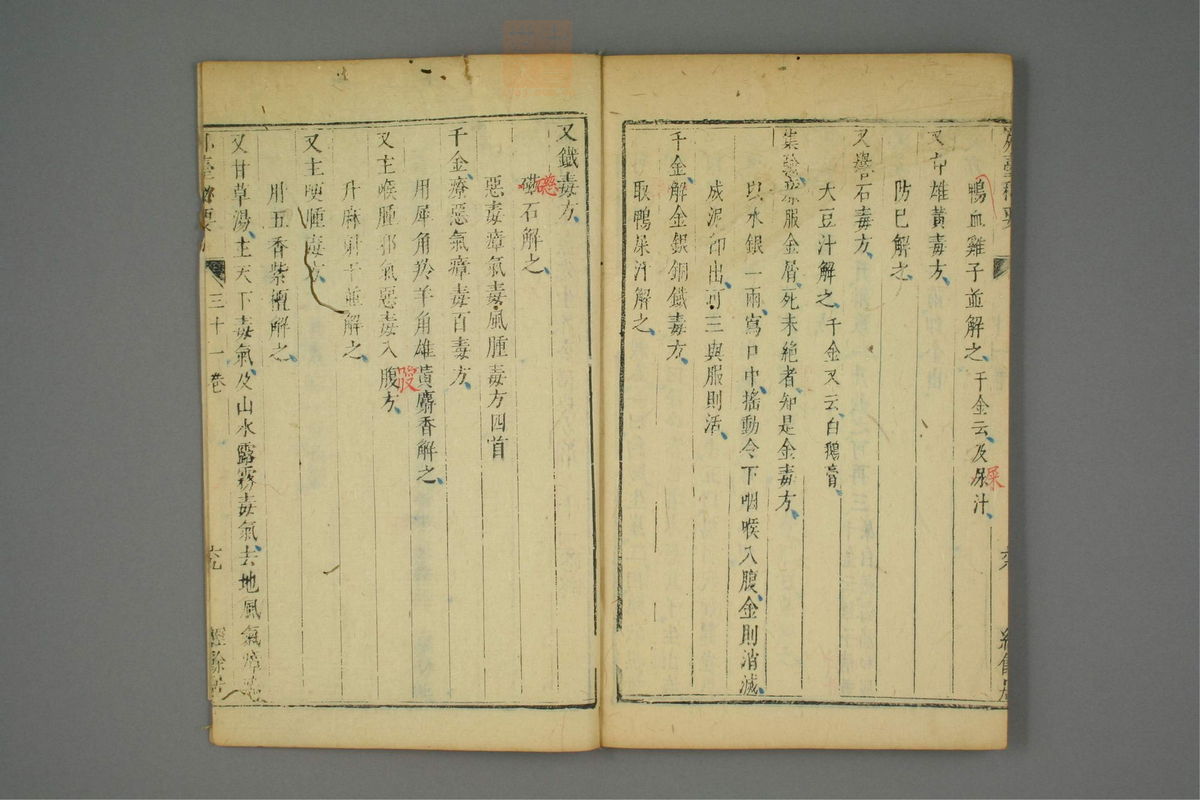 鴨血雞子並解之千金云及尿汁
屎
又方雄黃毒方
防巳解之
又礜石毒方
大豆汁解之千金又云白鵝膏
集驗療服金屑死未絕者知是金毒方
以水銀一兩寫口中搖動令下咽喉入腹金則消滅
成泥而出可三與服則活
千金解金銀銅鐵毒方
取鴨屎汁解之
又鐵毒方
磁石解之
惡毒瘴氣毒風腫毒方四首
千金療惡氣瘴毒百毒方
用犀角羚羊角雄黃麝香解之
又主喉腫邪氣惡毒入腹方
升麻射干並解之
又主腫毒方
用五香紫檀解之
又甘草湯主天下毒氣及山水露霧毒氣去地風氣瘴
外臺秘要
三十一卷
六九
經餘居